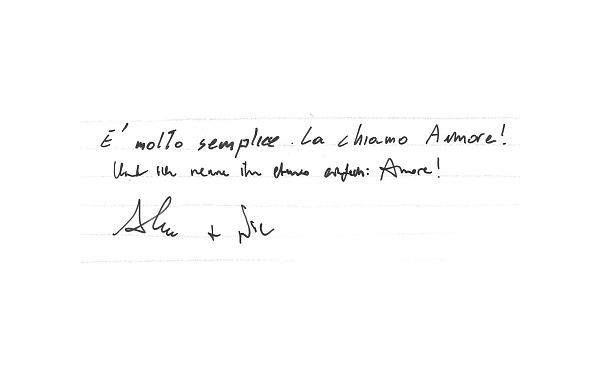 E' molto semplice. La chiamo Amore!
Und ich nenne ihn ebenso einfach: Amore!
+ Nic